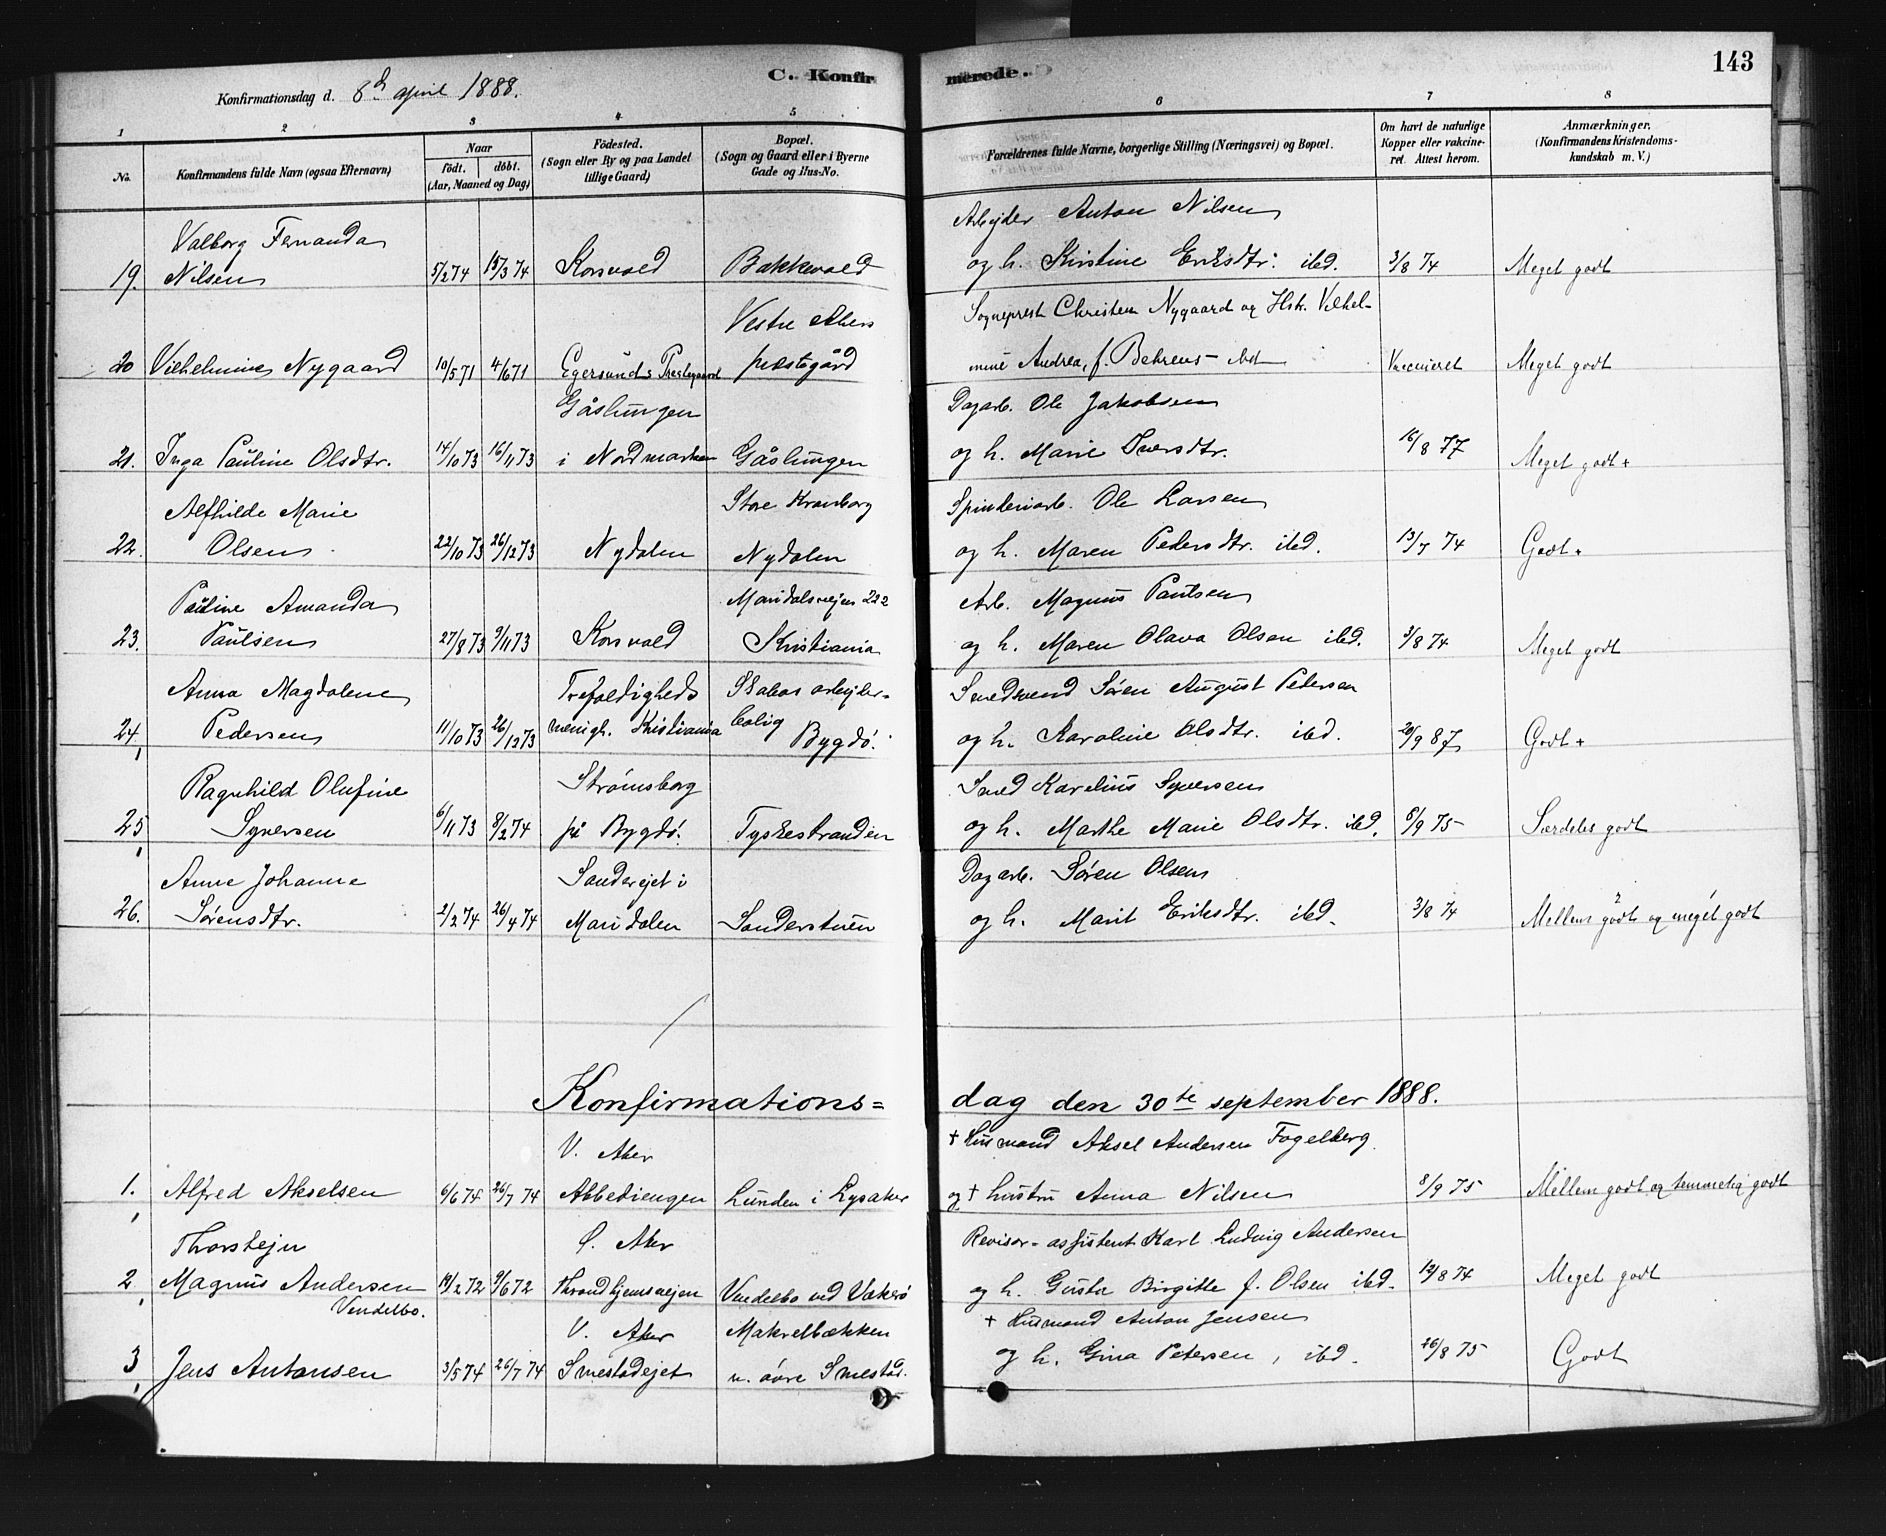 143
C. Konfirmerede.
Konfirmationsdag d. 8de april 1888.
1 2 3 4 5 6 7 8
No.
Konfirmandens fulde Navn (ogsaa Efternavn)
Naar
født. døbt.
(Aar, Maaned og Dag)
Fødested.
(Sogn eller By og paa Landet
tillige Gaard)
Bopæl.
(Sogn og Gaard eller i Byerne
Gade og Hus-No.
Forældrenes fulde Navne, borgerlige Stilling (Næringsvei) og Bopæl.
Om havt de naturlige
Kopper eller vakcine-
ret. Attest herom.
Anmærkninger.
(Konfirmandens Kristendoms-
kundskab m. V.)
Valborg Fernanda Arbejder Anton Nilsen
19. Nilsen 5/2 74 15/3 74 Korsvold Bakkevold og h. Kirstine Eriksdtr. ibd. 3/8 74 Meget godt
Vestre Akers Sogneprest Christen Nygaard og Hstr. Vilhel-
20 Vilhelmine Nygaard 10/5 71 4/6 71 Egersunds Prestegaard prestegård mine Andrea, f. Behrens - ibd Vaccineret Meget godt
Gåslungen Dagarb. Ole Jakobsen
21. Inga Pauline Olsdtr. 14/10 73 16/11 73 i Nordmarken Gåslungen og h. Marie Iversdtr. 16/8 77 Meget godt +
Alfhilde Marie Store Kronborg Spinderiarb. Ole Larsen
22. Olsen 22/10 73 26/12 73 Nydalen Nydalen og h. Maren Pedersdtr. ibd. 13/7 74 Godt +
Pauline Amanda Maridalsvejen 222 Arb. Magnus Paulsen
23. Paulsen 27/8 73 9/11 73 Korsvold Kristiania og h. Maren Olava Olsen ibd. 3/8 74 Meget godt
Anna Magdalene Trefoldigheds Skabos arbejder- Smedsvend Søren August Pedersen
24. Pedersen 11/10 73 26/12 73 menigh. Kristiania bolig Bygdö. og h. Karoline Olsdtr. ibd. 20/9 87 Godt +
Ragnhild Olufine Strömsborg Smed Karelius Syversen
25 Syversen 6/11 73 8/2 74 på Bygdö. Tyskestranden og h. Marthe Marie Olsdtr. ibd. 8/9 75 Særdeles godt
Anne Johanne Sanderejet i Dagarb. Søren Olsen
26. Sørensdtr. 2/2 74 26/4 74 Maridalen Sanderstuen og h. Marit Eriksdtr. ibd. 3/8 74 Mellem godt og meget godt
Konfirmations= dag den 30te september 1888.
V. Aker + Husmand Aksel Andersen Fogelberg
1. Alfred Akselsen 6/6 74 26/7 74 Abbediengen Lunden i Lysaker og + hustru Anna Nilsen 8/9 75 Mellem godt og temmelig godt
Thorstejn Ö. Aker Revisor-assistent Karl Ludvig Andersen
2 Magnus Andersen 19/2 72 9/6 72 Throndhjemsvejen Vendelbo ved Vækerö og h. Gusta Birgitte f. Olsen ibd. 12/8 74 Meget godt
Vendelbo.
V. Aker Makrelbækken + Husmand Anton Jensen
3 Jens Antonsen 3/5 74 26/7 74 Smestadejet u. övre Smestad. og h. Gina Petersen, ibd. 26/8 75 Godt